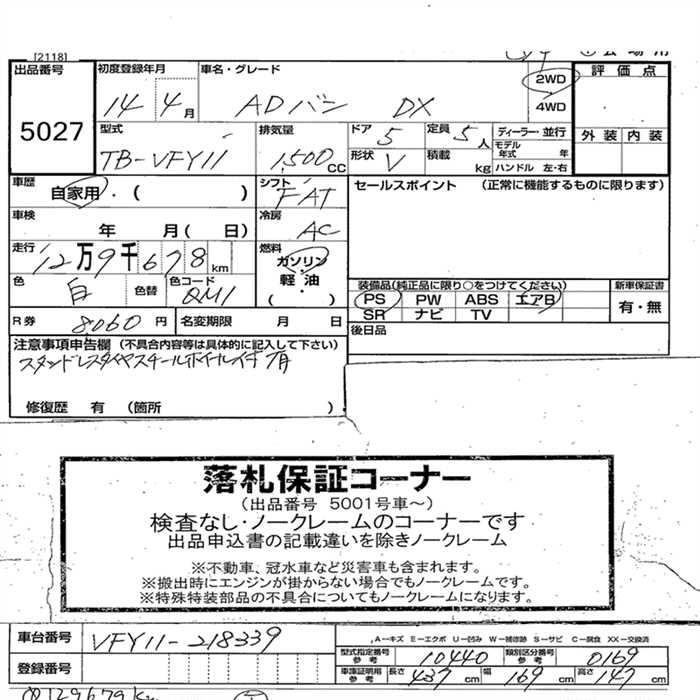 [2118]
出品番号
5027
初度登録年月
14年 4月
車名・グレード
ADバン DX
2WD
4WD
評価点
外装 内装
型式
TB-VFY11
排気量
1,500cc
ドア
5
定員
5人
形状
V
積載
kg
ディーラー・並行
モデル年式 年
ハンドル 左・右
車歴
自家用・( )
シフト
FAT
セールスポイント (正常に機能するものに限ります)
車検
年 月( 日)
冷房
AC
走行
12万9千678km
燃料
ガソリン
・
軽油
( )
色
白
色替
色コード
QM1
装備品(純正品に限り○をつけてください)
新車保証書
PS PW ABS エアB
SR ナビ TV
有・無
R券
8,060円
名変期限 月 日
後日品
注意事項申告欄 (不具合内容等は具体的に記入して下さい)
スタッドレスタイヤスチールホイール付 有
修復歴 有 (箇所 )
落札保証コーナー
(出品番号 5001号車～)
検査なし・ノークレームのコーナーです
出品申込書の記載違いを除きノークレーム
※不動車、冠水車など災害車も含まれます。
※搬出時にエンジンが掛からない場合でもノークレームです。
※特殊特装部品の不具合についてもノークレームになります。
車台番号
VFY11-218339
A－キズ E－エクボ U－凹み W－補修跡 S－サビ C－腐食 XX－交換済
型式指定番号
参考
10440
類別区分番号
参考
0169
登録番号
車庫証明用
参考
長さ 437cm 幅 169cm 高さ 147cm
129679km